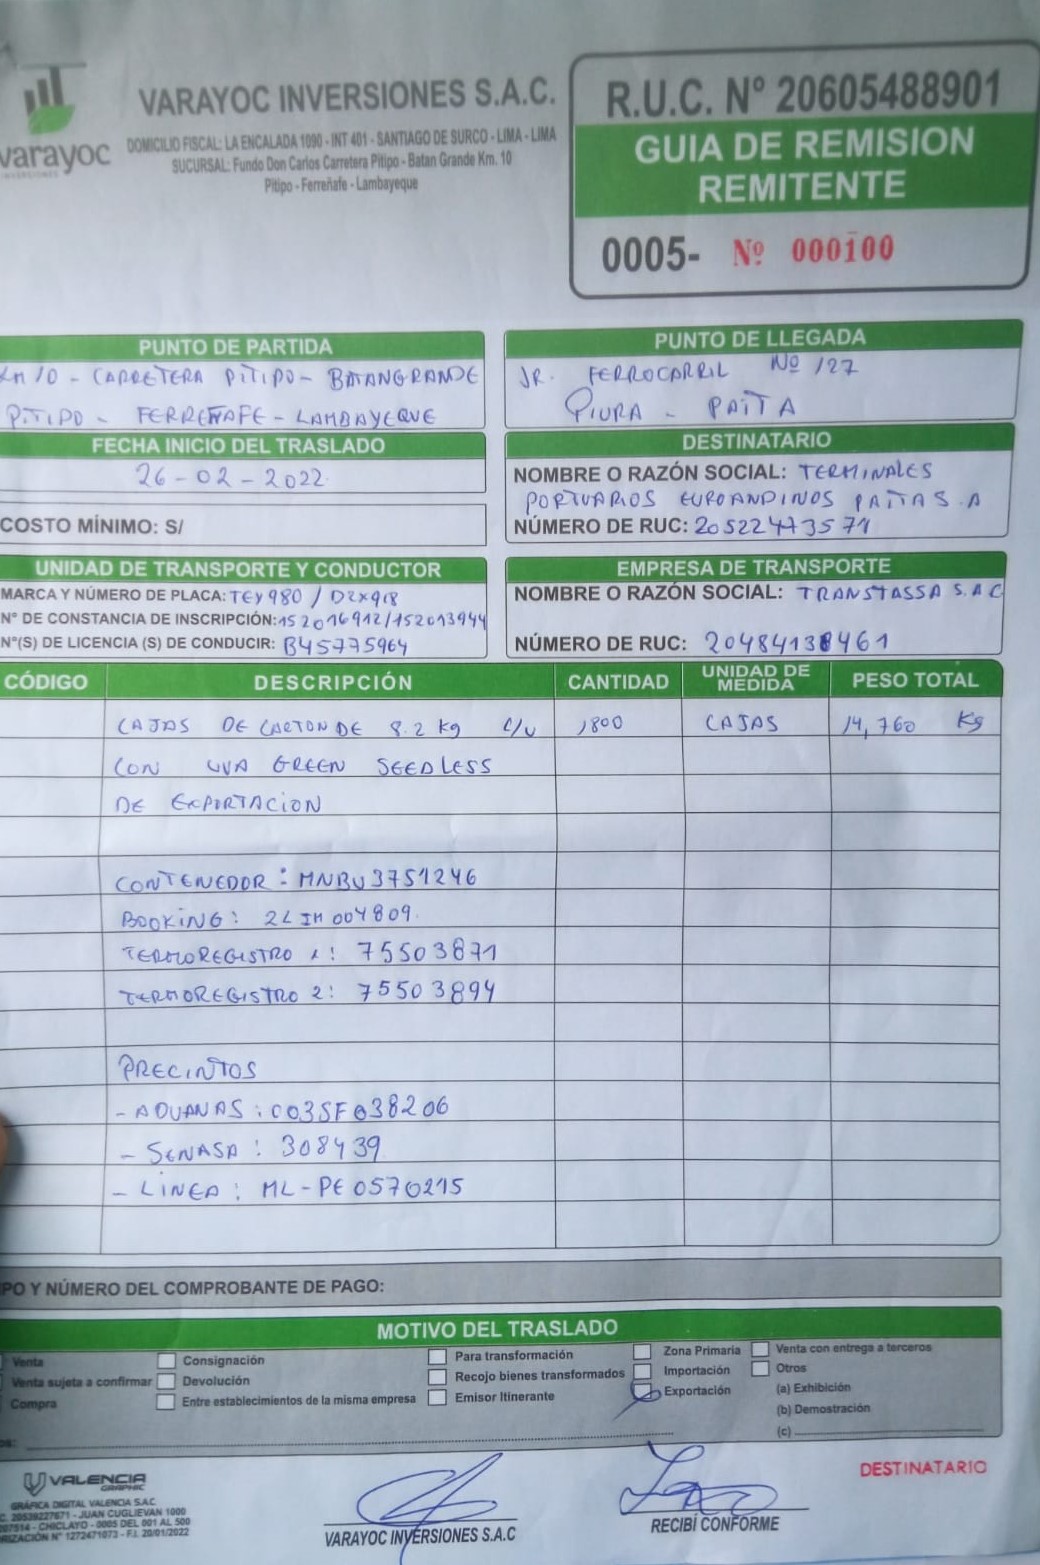 varayoc
INVERSIONES
VARAYOC INVERSIONES S.A.C.
DOMICILIO FISCAL: LA ENCALADA 1090 - INT 401 - SANTIAGO DE SURCO - LIMA - LIMA
SUCURSAL: Fundo Don Carlos Carretera Pitipo - Batan Grande Km. 10
Pitipo - Ferreñafe - Lambayeque
R.U.C. Nº 20605488901
GUIA DE REMISION
REMITENTE
0005- Nº 000100
PUNTO DE PARTIDA
KM 10 - CARRETERA PITIPO - BATANGRANDE
PITIPO - FERREÑAFE - LAMBAYEQUE
PUNTO DE LLEGADA
JR. FERROCARRIL Nº 127
PIURA - PAITA
FECHA INICIO DEL TRASLADO
26 - 02 - 2022
COSTO MÍNIMO: S/
DESTINATARIO
NOMBRE O RAZÓN SOCIAL: TERMINALES
PORTUARIOS EUROANDINOS PAITA S.A
NÚMERO DE RUC: 20522473571
UNIDAD DE TRANSPORTE Y CONDUCTOR
MARCA Y NÚMERO DE PLACA: TEY980 / D2X918
Nº DE CONSTANCIA DE INSCRIPCIÓN: 152016912/152013944
Nº(S) DE LICENCIA (S) DE CONDUCIR: B45775964
EMPRESA DE TRANSPORTE
NOMBRE O RAZÓN SOCIAL: TRANSTASSA S.A.C
NÚMERO DE RUC: 20484138461
CÓDIGO DESCRIPCIÓN CANTIDAD UNIDAD DE MEDIDA PESO TOTAL
CAJAS DE CARTON DE 8.2 Kg c/u 1800 CAJAS 14,760 Kg
CON UVA GREEN SEEDLESS
DE EXPORTACION
CONTENEDOR: MNBU3751246
BOOKING: 2LIM004809.
TERMOREGISTRO 1: 75503871
TERMOREGISTRO 2: 75503894
PRECINTOS
- ADUANAS: C03SF038206
- SENASA: 308439
- LINEA: ML-PE0570215
PO Y NÚMERO DEL COMPROBANTE DE PAGO:
MOTIVO DEL TRASLADO
Venta
Venta sujeta a confirmar
Compra
Consignación
Devolución
Entre establecimientos de la misma empresa
Para transformación
Recojo bienes transformados
Emisor Itinerante
Zona Primaria
Importación
Exportación
Venta con entrega a terceros
Otros
(a) Exhibición
(b) Demostración
(c)
VALENCIA
GRAPHIC
GRÁFICA DIGITAL VALENCIA S.A.C.
C. 20539227671 - JUAN CUGLIEVAN 1000
CHICLAYO - 0005 DEL 001 AL 500
RIZACIÓN Nº 1272471073 - F.I. 20/01/2022
VARAYOC INVERSIONES S.A.C
RECIBÍ CONFORME
DESTINATARIO